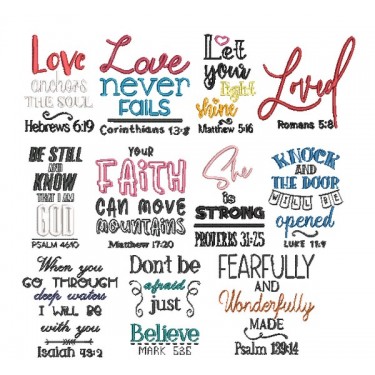 Love
anchors
THE SOUL
Hebrews 6:19
Love
never
FAILS
Corinthians 13:8
Let
your
light
shine
Matthew 5:16
Loved
Romans 5:8
BE STILL
AND
KNOW
THAT I AM
GOD
PSALM 46:10
YOUR
FAITH
CAN MOVE
MOUNTAINS
Matthew 17:20
She
is
STRONG
PROVERBS 31:25
KNOCK
AND
THE DOOR
WILL BE
opened
LUKE 11:9
When you
GO THROUGH
deep waters
I WILL BE
with you
Isaiah 43:2
Don't be
afraid
just
Believe
MARK 5:36
FEARFULLY
AND
Wonderfully
MADE
Psalm 139:14